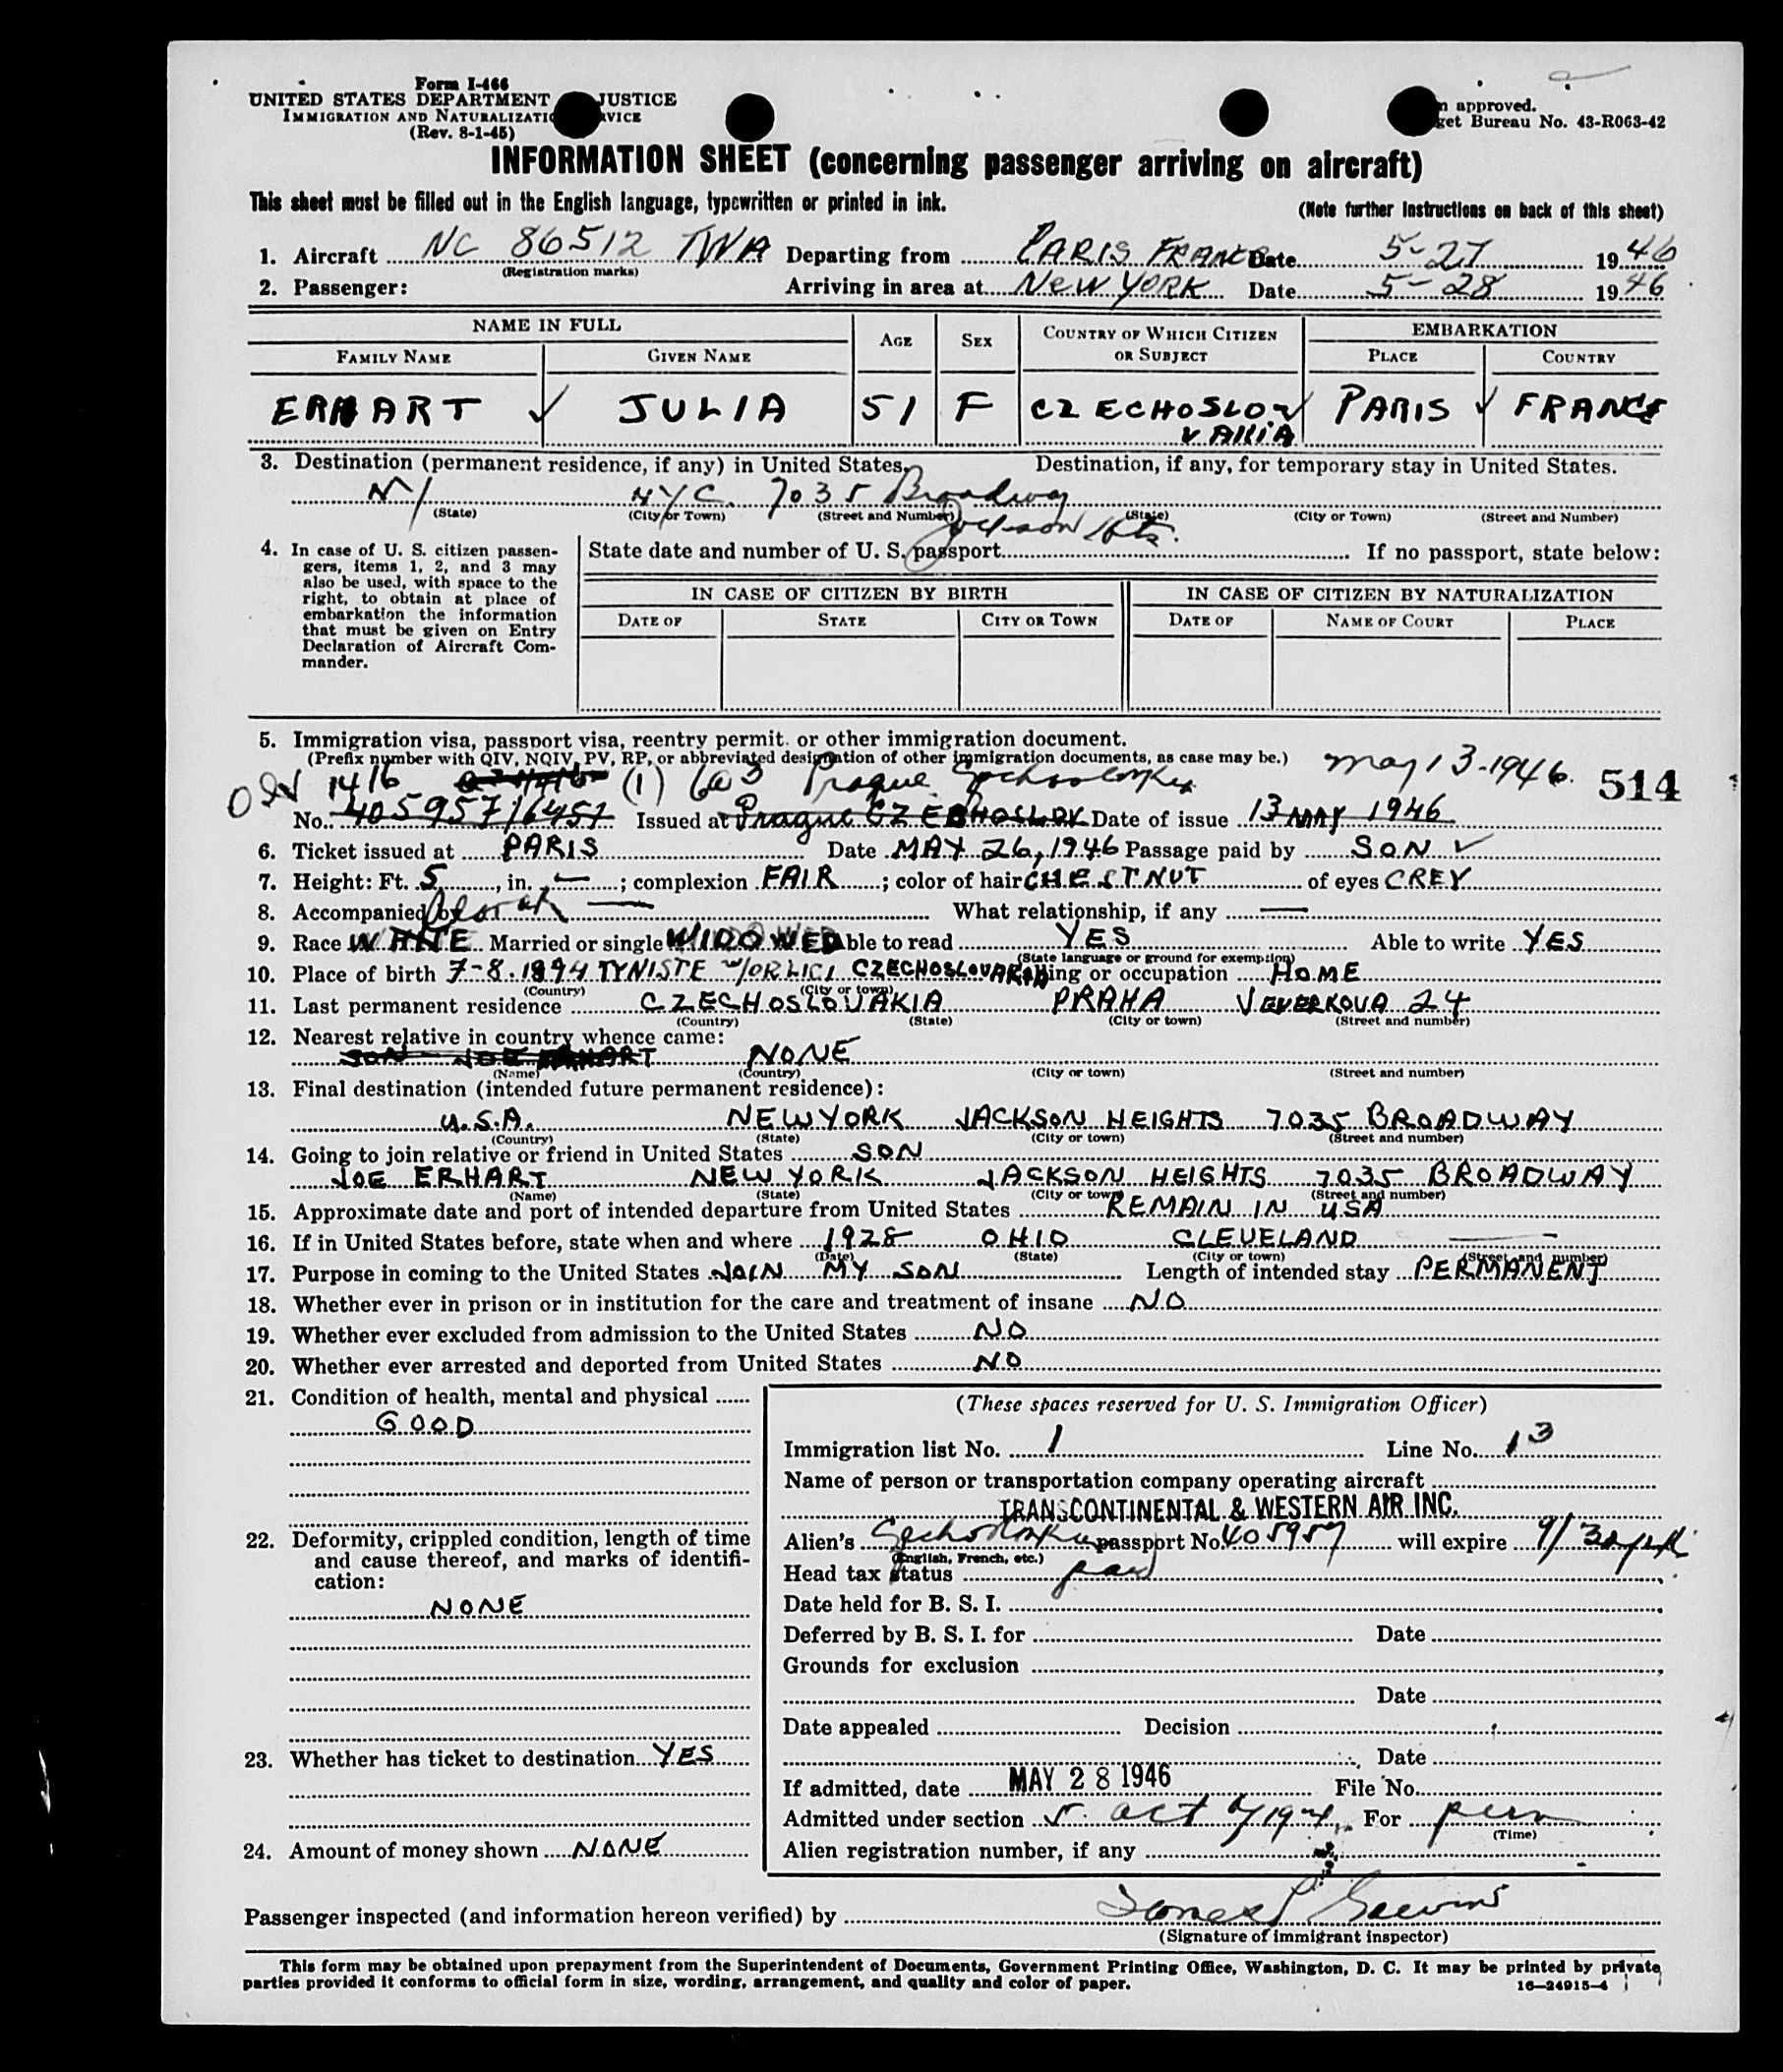 Form I-466
UNITED STATES DEPARTMENT JUSTICE
IMMIGRATION AND NATURALIZATIO VICE
(Rev. 8-1-45)
n approved.
get Bureau No. 43-R063-42
INFORMATION SHEET (concerning passenger arriving on aircraft)
This sheet must be filled out in the English language, typewritten or printed in ink.
(Note further instructions on back of this sheet)
1. Aircraft NC 86512 TWA Departing from PARIS FRANCE Date 5-27 1946
(Registration marks)
2. Passenger: Arriving in area at NEW YORK Date 5-28 1946
NAME IN FULL AGE SEX COUNTRY OF WHICH CITIZEN OR SUBJECT EMBARKATION
FAMILY NAME GIVEN NAME PLACE COUNTRY
ERHART JULIA 51 F CZECHOSLO PARIS FRANCE
VAKIA
3. Destination (permanent residence, if any) in United States. Destination, if any, for temporary stay in United States.
NY NYC. 7035 Broadway
(State) (City or Town) (Street and Number) (State) (City or Town) (Street and Number)
Jackson Hts.
4. In case of U. S. citizen passengers, items 1, 2, and 3 may also be used, with space to the right, to obtain at place of embarkation the information that must be given on Entry Declaration of Aircraft Commander.
State date and number of U. S. passport If no passport, state below:
IN CASE OF CITIZEN BY BIRTH IN CASE OF CITIZEN BY NATURALIZATION
DATE OF STATE CITY OR TOWN DATE OF NAME OF COURT PLACE
5. Immigration visa, passport visa, reentry permit, or other immigration document.
(Prefix number with QIV, NQIV, PV, RP, or abbreviated designation of other immigration documents, as case may be.)
1416 (1) 6a3 Prague May 13-1946. 514
No. 405957/6457 Issued at Prague CZECHOSLOV Date of issue 13 MAY 1946
6. Ticket issued at PARIS Date MAY 26, 1946 Passage paid by SON
7. Height: Ft. 5, in. —; complexion FAIR; color of hair CHESTNUT of eyes GREY
8. Accompanied by — What relationship, if any —
9. Race WHITE Married or single WIDOWED Able to read YES Able to write YES
(State language or ground for exemption)
10. Place of birth 7-8.1894 TYNISTE N/ORLICI CZECHOSLOVAKIA ing or occupation HOME
(Country) (City or town)
11. Last permanent residence CZECHOSLOVAKIA PRAHA VEVERKOVA 24
(Country) (State) (City or town) (Street and number)
12. Nearest relative in country whence came:
SON - JOE ERHART NONE
(Name) (Country) (City or town) (Street and number)
13. Final destination (intended future permanent residence):
U.S.A. NEW YORK JACKSON HEIGHTS 7035 BROADWAY
(Country) (State) (City or town) (Street and number)
14. Going to join relative or friend in United States SON
JOE ERHART NEW YORK JACKSON HEIGHTS 7035 BROADWAY
(Name) (State) (City or town) (Street and number)
15. Approximate date and port of intended departure from United States REMAIN IN USA
16. If in United States before, state when and where 1928 OHIO CLEVELAND —
(Date) (State) (City or town) (Street and number)
17. Purpose in coming to the United States JOIN MY SON Length of intended stay PERMANENT
18. Whether ever in prison or in institution for the care and treatment of insane NO
19. Whether ever excluded from admission to the United States NO
20. Whether ever arrested and deported from United States NO
21. Condition of health, mental and physical
GOOD
22. Deformity, crippled condition, length of time and cause thereof, and marks of identification:
NONE
23. Whether has ticket to destination YES
24. Amount of money shown NONE
(These spaces reserved for U. S. Immigration Officer)
Immigration list No. 1 Line No. 13
Name of person or transportation company operating aircraft
TRANSCONTINENTAL & WESTERN AIR INC.
Alien's passport No. 405957 will expire
(English, French, etc.)
Head tax status paid
Date held for B. S. I.
Deferred by B. S. I. for Date
Grounds for exclusion
Date
Date appealed Decision
Date
If admitted, date MAY 28 1946 File No.
Admitted under section 5 act of 1924 For perm
(Time)
Alien registration number, if any
Passenger inspected (and information hereon verified) by
(Signature of immigrant inspector)
This form may be obtained upon prepayment from the Superintendent of Documents, Government Printing Office, Washington, D. C. It may be printed by private
parties provided it conforms to official form in size, wording, arrangement, and quality and color of paper.
16—24915-4